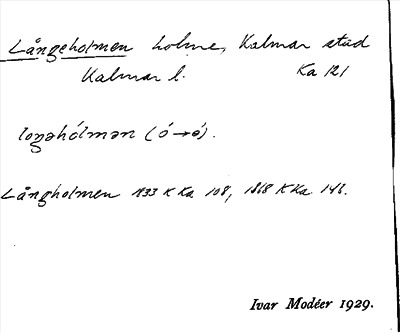 Långeholmen holme, Kalmar stad
Kalmar l. Ka 121
loŋəhólmən (ó→ò).
Långholmen 1833 K Ka 108, 1868 K Ka 146.
Ivar Modéer 1929.